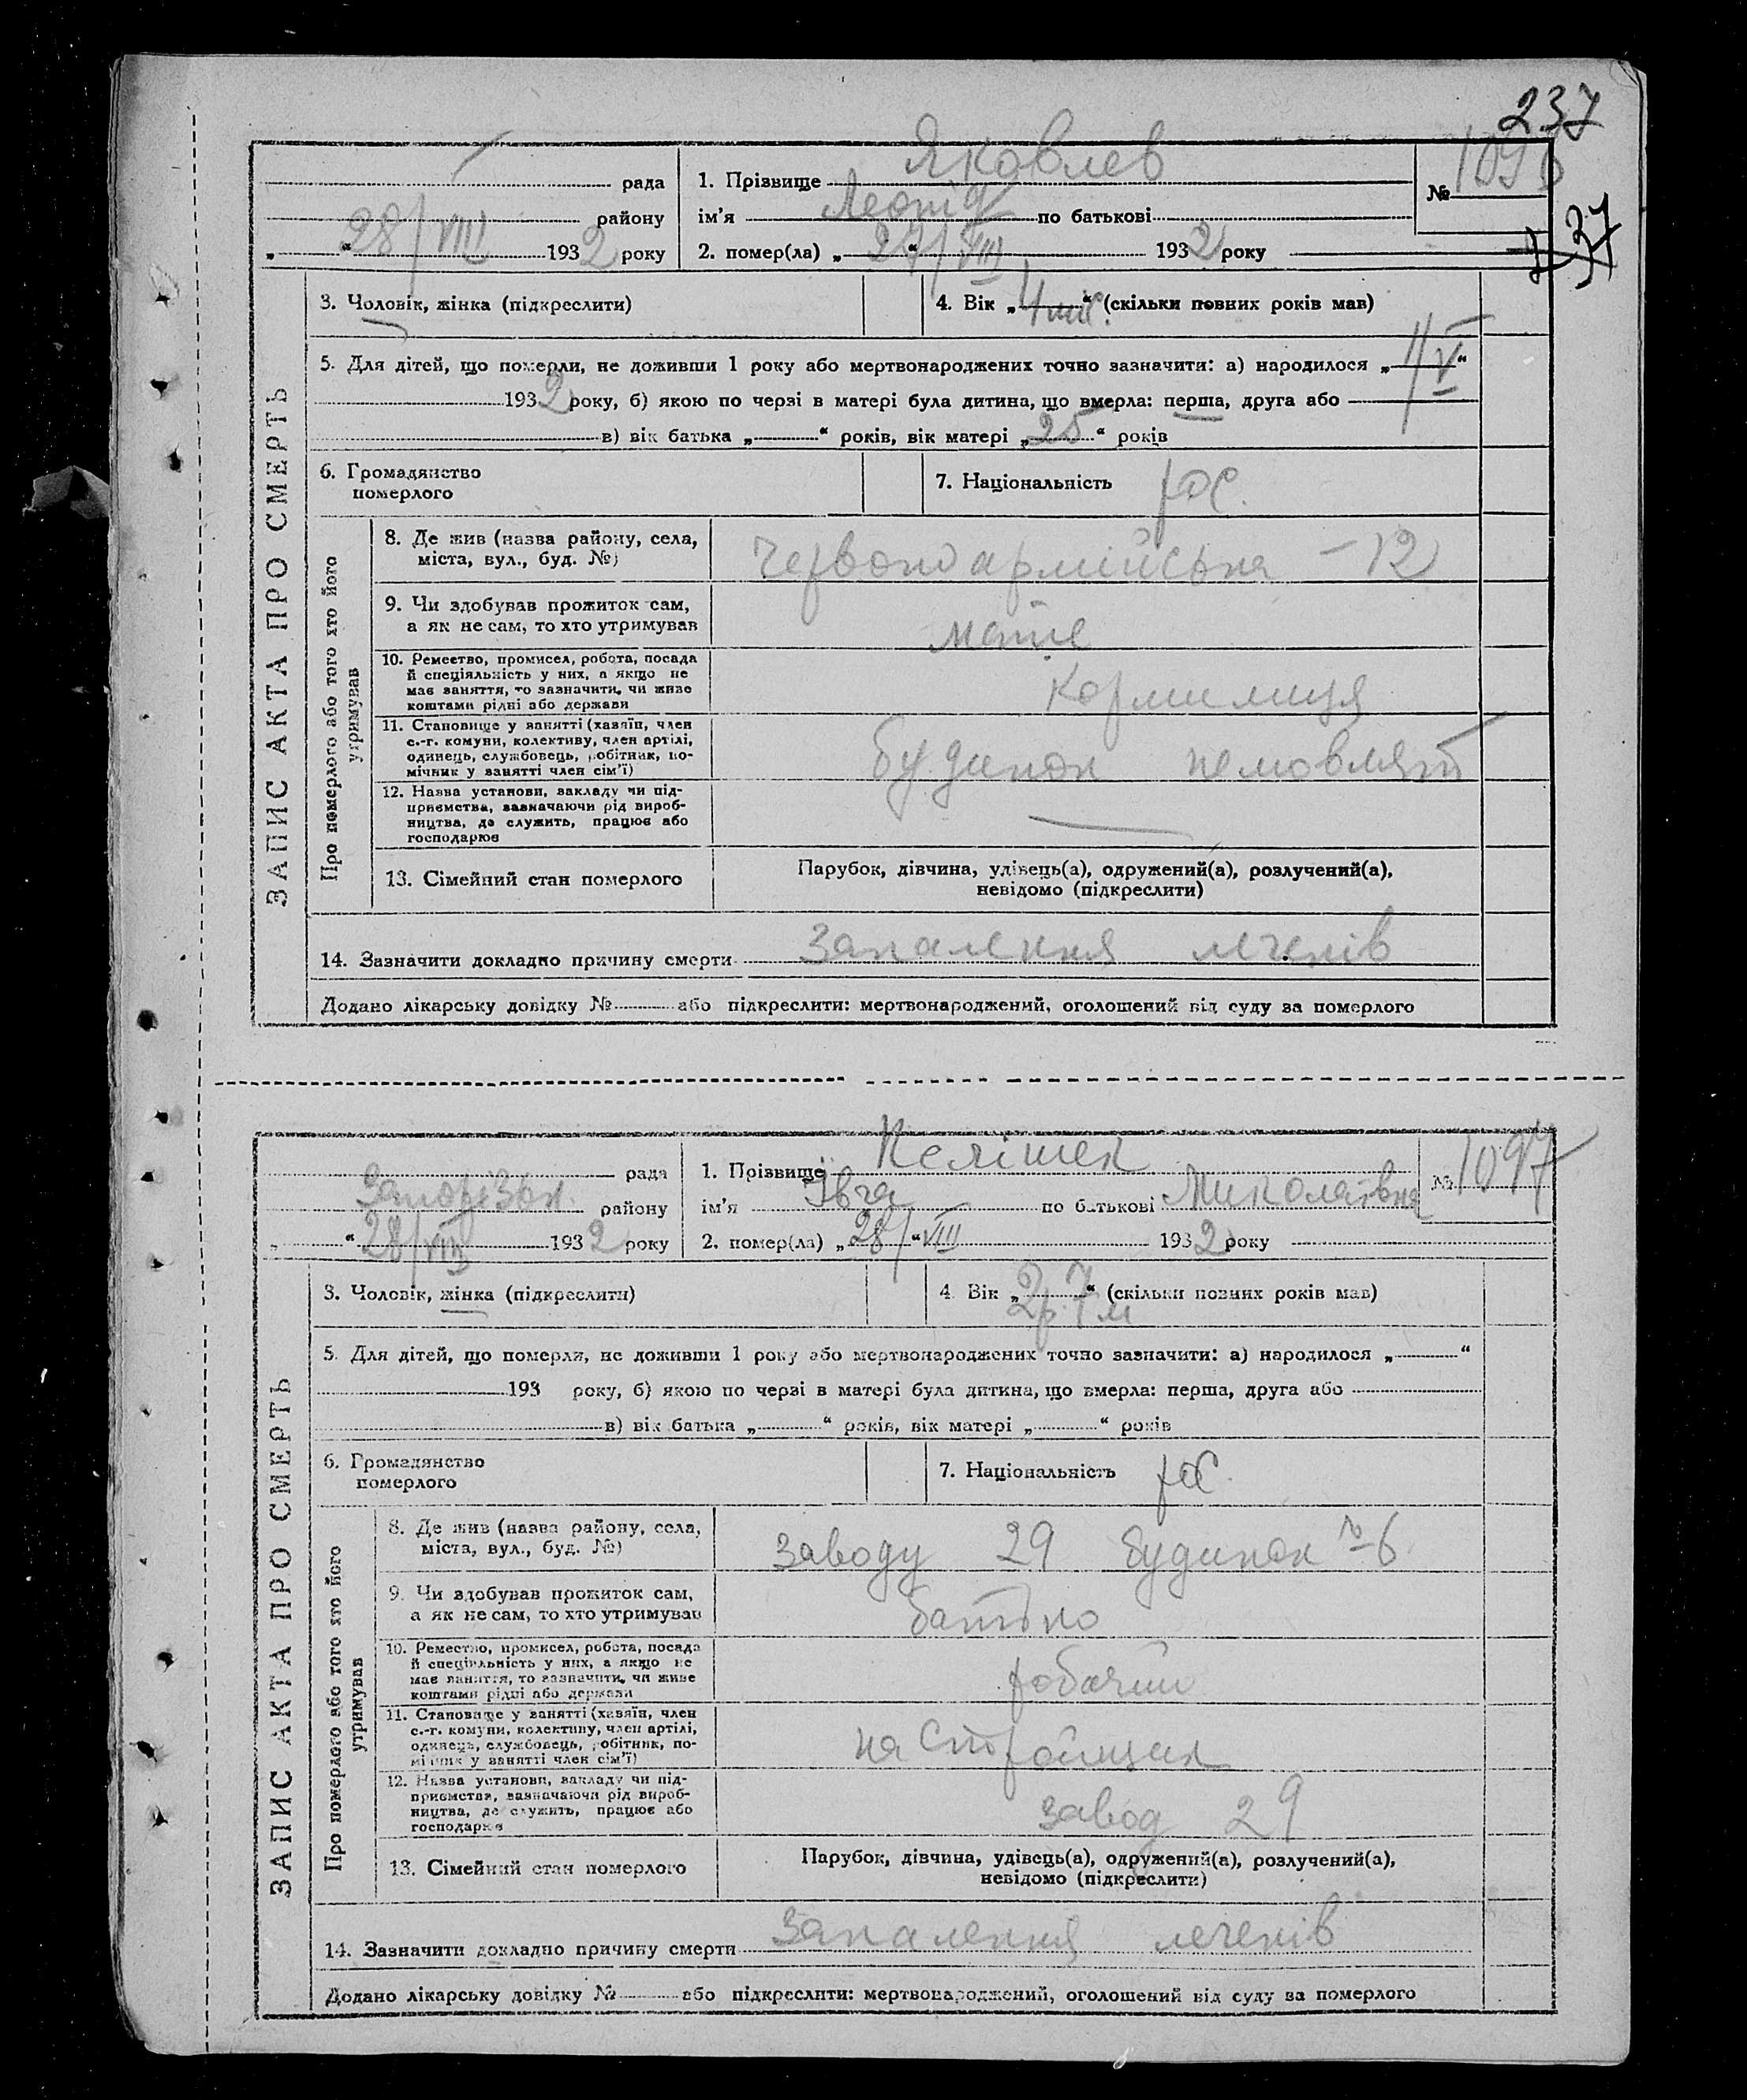 237
рада
району
28/VIII 1932 року
1. Прізвище Яковлев
ім'я Леонід по батькові
2. помер(ла) „27/VIII“ 1932 року
№ 1096
37
ЗАПИС АКТА ПРО СМЕРТЬ
3. Чоловік, жінка (підкреслити)
4. Вік „4 міс.“ (скільки повних років мав)
5. Для дітей, що померли, не доживши 1 року або мертвонароджених точно зазначити: а) народилося „
1932 року, б) якою по черзі в матері була дитина, що вмерла: перша, друга або
в) вік батька „ “ років, вік матері „25“ років
6. Громадянство
померлого
7. Національність рос.
Про померлого або того хто його
утримував
8. Де жив (назва району, села,
міста, вул., буд. №)
Червоноармійська – 12
9. Чи здобував прожиток сам,
а як не сам, то хто утримував
мати
10. Ремество, промисел, робота, посада
й спеціяльність у них, а якщо не
має заняття, то зазначити, чи живе
коштами рідні або держави
Кормилиця
11. Становище у занятті (хазяїн, член
с.-г. комуни, колективу, член артілі,
одинець, службовець, робітник, по-
мічник у занятті член сім'ї)
будинок немовлят
12. Назва установи, закладу чи під-
приємства, зазначаючи рід вироб-
ництва, де служить, працює або
господарює
13. Сімейний стан померлого
Парубок, дівчина, удівець(а), одружений(а), розлучений(а),
невідомо (підкреслити)
14. Зазначити докладно причину смерти запалення легенів
Додано лікарську довідку № або підкреслити: мертвонароджений, оголошений від суду за померлого
рада
району
28/VIII 1932 року
1. Прізвище
ім'я по батькові Миколаївна
2. помер(ла) „28/“VIII 1932 року
№ 1097
ЗАПИС АКТА ПРО СМЕРТЬ
3. Чоловік, жінка (підкреслити)
4. Вік „2р. 7м“ (скільки повних років мав)
5. Для дітей, що померли, не доживши 1 року або мертвонароджених точно зазначити: а) народилося „ “
193 року, б) якою по черзі в матері була дитина, що вмерла: перша, друга або
в) вік батька „ “ років, вік матері „ “ років
6. Громадянство
померлого
7. Національність рос
Про померлого або того хто його
утримував
8. Де жив (назва району, села,
міста, вул., буд. №)
заводу 29 будинок № 6
9. Чи здобував прожиток сам,
а як не сам, то хто утримував
батько
10. Ремество, промисел, робота, посада
й спеціяльність у них, а якщо не
має заняття, то зазначити, чи живе
коштами рідні або держави
робочий
11. Становище у занятті (хазяїн, член
с.-г. комуни, колективу, член артілі,
одинець, службовець, робітник, по-
мічник у занятті член сім'ї)
на
12. Назва установи, закладу чи під-
приємства, зазначаючи рід вироб-
ництва, де служить, працює або
господарює
завод 29
13. Сімейний стан померлого
Парубок, дівчина, удівець(а), одружений(а), розлучений(а),
невідомо (підкреслити)
14. Зазначити докладно причину смерти запалення легенів
Додано лікарську довідку № або підкреслити: мертвонароджений, оголошений від суду за померлого